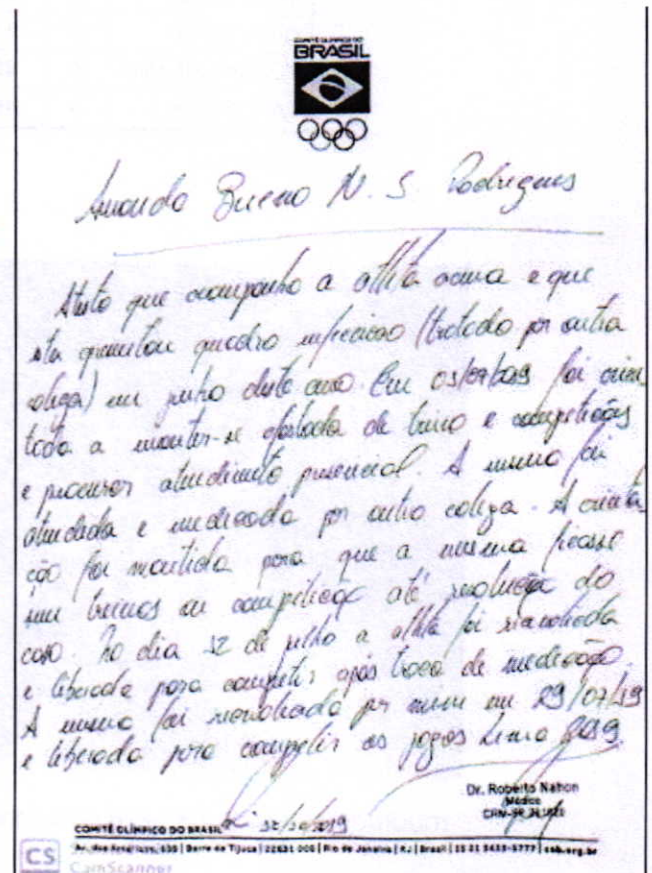 COMITÊ OLÍMPICO DO
BRASIL
Amanda Bueno N. S. Rodrigues
Atesto que acompanho a atleta acima e que
esta apresentou quadro infeccioso (tratado por outra
colega) em junho deste ano. Em 05/07/2019 foi orien
tada a manter-se afastada de treino e competições
e procurar atendimento presencial. A mesma foi
atendida e medicada por outro colega. A orienta
ção foi mantida para que a mesma ficasse
sem treinos ou competição até resolução do
caso. No dia 12 de julho a atleta foi reavaliada
e liberada para competir após troca de medicação.
A mesma foi reavaliada por mim em 29/07/19
e liberada para competir os jogos Lima 2019
Dr. Roberto Nahon
Médico
COMITÊ OLÍMPICO DO BRASIL
Barra da Tijuca | 22631 005 | Rio de Janeiro | RJ | Brasil | 55 21 3433-5777 | cob.org.br
CS
CamScanner